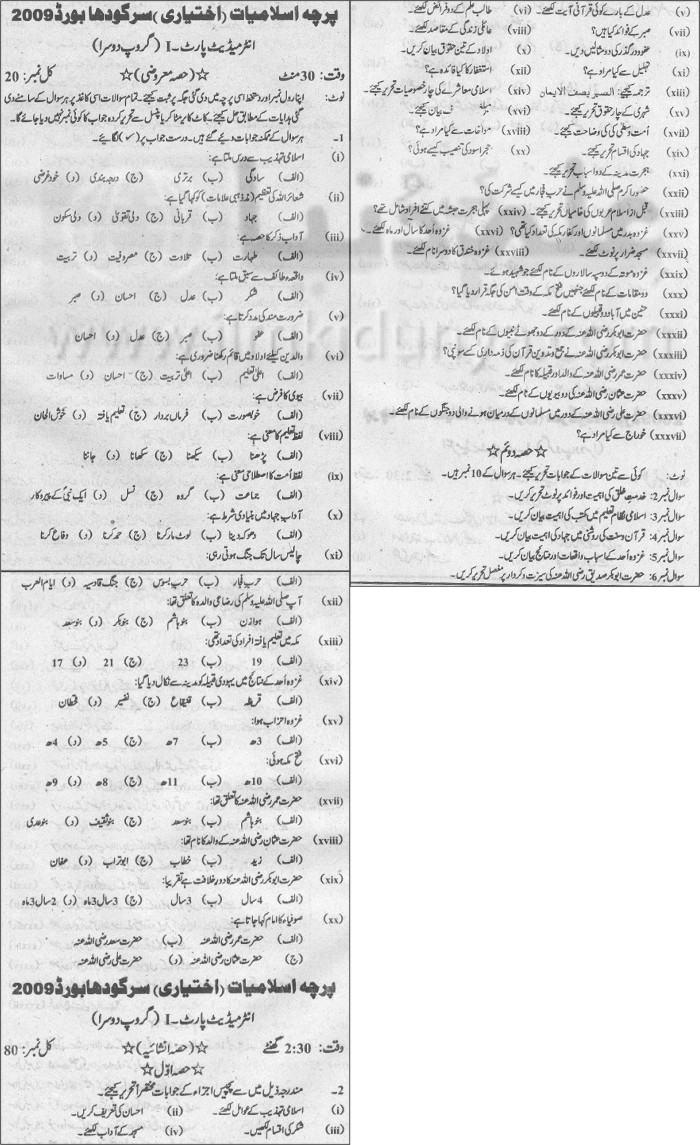 پرچہ اسلامیات (اختیاری) سرگودھا بورڈ 2009
انٹرمیڈیٹ پارٹ-I (گروپ دوسرا)
وقت: 30 منٹ ☆(حصہ معروضی)☆ کل نمبر: 20
نوٹ: اپنا رول نمبر اور دستخط اسی پرچہ میں دی گئی جگہ پر ثبت کیجئے۔ تمام سوالات اسی کاغذ پر ہر سوال کے سامنے دی
گئی ہدایات کے مطابق حل کیجئے۔ کاٹ کر یا مٹا کر یا پنسل سے تحریر کردہ جواب کا کوئی نمبر نہیں دیا جائے گا۔
1- ہر سوال کے ممکنہ جوابات دیے گئے ہیں۔ درست جواب پر (✓) لگائیے۔
(i) اسلامی تہذیب سے درس ملتا ہے:
(الف) سادگی (ب) برتری (ج) درجہ بندی (د) خود غرضی
(ii) شعائر اللہ کی تعظیم (مذہبی علامات) کو کہا گیا ہے:
(الف) جہاد (ب) قربانی (ج) دلی تقویٰ (د) دلی سکون
(iii) آداب ذکر کا حصہ ہے:
(الف) طہارت (ب) تلاوت (ج) مصروفیت (د) تربیت
(iv) واقعہ طائف سے سبق ملتا ہے:
(الف) شکر (ب) عدل (ج) احسان (د) صبر
(v) ضرورت مند کی مدد کرتا ہے:
(الف) عفو (ب) صبر (ج) عدل (د) احسان
(vi) والدین کیلئے اولاد میں قائم رکھنا ضروری ہے:
(الف) اعلیٰ تعلیم (ب) اعلیٰ تربیت (ج) احسان (د) مساوات
(vii) بیوی کا فرض ہے:
(الف) خوبصورت (ب) فرماں بردار (ج) تعلیم یافتہ (د) خوش الحان
(viii) لفظ تعلیم کا معنی ہے:
(الف) پڑھنا (ب) سیکھنا (ج) سکھانا (د) جاننا
(ix) لفظ اُمت کا اصطلاحی معنی ہے:
(الف) جماعت (ب) گروہ (ج) نسل (د) ایک نبیؑ کے پیروکار
(x) آداب جہاد میں بنیادی شرط ہے:
(الف) دھوکہ دینا (ب) لوٹ مار کرنا (ج) حملہ کرنا (د) دفاع کرنا
(xi) چالیس سال تک جنگ ہوتی رہی:
(الف) حرب فجار (ب) حرب بسوس (ج) جنگ قادسیہ (د) ایام العرب
(xii) آپ صلی اللہ علیہ وسلم کی رضاعی والدہ کا تعلق تھا:
(الف) ہوازن (ب) بنو ہاشم (ج) بنو بکر (د) بنو سعد
(xiii) مکہ میں تعلیم یافتہ افراد کی تعداد تھی:
(الف) 19 (ب) 23 (ج) 21 (د) 17
(xiv) غزوہ اُحد کے نتائج میں یہودی قبیلہ کو مدینہ سے نکال دیا گیا:
(الف) قریظہ (ب) قینقاع (ج) نضیر (د) قحطان
(xv) غزوہ احزاب ہوا:
(الف) 3ھ (ب) 7ھ (ج) 5ھ (د) 4ھ
(xvi) فتح مکہ ہوئی:
(الف) 10ھ (ب) 11ھ (ج) 8ھ (د) 9ھ
(xvii) حضرت عمر رضی اللہ عنہ کا تعلق تھا:
(الف) بنو ہاشم (ب) بنو سعد (ج) بنو ثقیف (د) بنو عدی
(xviii) حضرت عثمان رضی اللہ عنہ کے والد کا نام تھا:
(الف) زید (ب) خطاب (ج) ابو تراب (د) عفان
(xix) حضرت ابوبکر رضی اللہ عنہ کا دور خلافت ہے تقریباً:
(الف) 4 سال (ب) 3 سال (ج) 3 سال 3 ماہ (د) 2 سال 3 ماہ
(xx) صوفیاء کا امام کہا جاتا ہے:
(الف) حضرت عمر رضی اللہ عنہ (ب) حضرت سعد رضی اللہ عنہ
(ج) حضرت عثمان رضی اللہ عنہ (د) حضرت علی رضی اللہ عنہ
پرچہ اسلامیات (اختیاری) سرگودھا بورڈ 2009
انٹرمیڈیٹ پارٹ-I (گروپ دوسرا)
وقت: 2:30 گھنٹے ☆(حصہ انشائیہ)☆ کل نمبر: 80
☆حصہ اوّل☆
2- مندرجہ ذیل میں سے پچیس اجزاء کے جوابات مختصراً تحریر کیجئے۔
(i) اسلامی تہذیب کے عوامل لکھئے۔ (ii) احسان کی تعریف کریں۔
(iii) شکر کی اقسام لکھیں۔ (iv) مسجد کے آداب لکھئے۔
(v) عدل کے بارے کوئی قرآنی آیت لکھئے۔ (vi) طالب علم کے دو فرائض لکھئے۔
(vii) صبر کے فوائد کیا ہیں؟ (viii) عائلی زندگی کے مقاصد لکھئے۔
(ix) عفو و درگزر کی دو مثالیں دیں۔ (x) اولاد کے تین حقوق بیان کریں۔
(xi) تہلیل سے کیا مراد ہے؟ (xii) استغفار کا کیا فائدہ ہے؟
(xiii) ترجمہ کیجئے: الصبر نصف الایمان (xiv) اسلامی معاشرے کی چار خصوصیات تحریر کیجئے۔
(xv) شہری کے چار حقوق تحریر کیجئے۔ (xvi) بیان کیجئے۔
(xvii) اُمت وسطیٰ کی وضاحت کیجئے۔ (xviii) مواخات سے کیا مراد ہے؟
(xix) جہاد کی اقسام تحریر کیجئے۔ (xx) حجر اسود کی تنصیب کیسے ہوئی؟
(xxi) ہجرت مدینہ کے دو اسباب تحریر کیجئے۔
(xxii) حضور اکرم صلی اللہ علیہ وسلم نے حرب فجار میں کیسے شرکت کی؟
(xxiii) قبل از اسلام عربوں کی خامیاں تحریر کیجئے۔ (xxiv) پہلی ہجرت حبشہ میں کتنے افراد شامل تھے؟
(xxv) غزوہ بدر میں مسلمانوں اور کفار مکہ کی تعداد کیا تھی؟ (xxvi) غزوہ اُحد کا سال اور ماہ لکھئے۔
(xxvii) مسجد ضرار پر نوٹ لکھئے۔ (xxviii) غزوہ خندق کا دوسرا نام لکھئے۔
(xxix) غزوہ موتہ کے دو سپہ سالاروں کے نام لکھئے جو شہید ہوئے۔
(xxx) دو مقامات کے نام لکھئے جنہیں فتح مکہ کے وقت امن کی جگہ قرار دیا گیا؟
(xxxi) حنین میں آباد دو قبیلوں کے نام لکھئے۔
(xxxii) حضرت ابوبکر رضی اللہ عنہ کے دور کے دو جھوٹے نبیوں کے نام لکھئے۔
(xxxiii) حضرت ابوبکر رضی اللہ عنہ نے جمع و تدوین قرآن کی ذمہ داری کسے سونپی؟
(xxxiv) حضرت عمر رضی اللہ عنہ کے والد اور قبیلہ کا نام لکھئے۔
(xxxv) حضرت عثمان رضی اللہ عنہ کی دو بیویوں کے نام لکھئے۔
(xxxvi) حضرت علی رضی اللہ عنہ کے دور میں مسلمانوں کے درمیان ہونے والی دو جنگوں کے نام لکھئے۔
(xxxvii) خوارج سے کیا مراد ہے؟
☆حصہ دوئم☆
نوٹ: کوئی سے تین سوالات کے جوابات تحریر کیجئے۔ ہر سوال کے 10 نمبر ہیں۔
سوال نمبر 2: خدمت خلق کی اہمیت اور فوائد پر نوٹ تحریر کریں۔
سوال نمبر 3: اسلامی نظام تعلیم میں مکتب کی اہمیت بیان کریں۔
سوال نمبر 4: قرآن و سنت کی روشنی میں جہاد کی اہمیت بیان کریں۔
سوال نمبر 5: غزوہ اُحد کے اسباب واقعات اور نتائج بیان کریں۔
سوال نمبر 6: حضرت ابوبکر صدیق رضی اللہ عنہ کی سیرت و کردار پر مفصل تحریر کریں۔